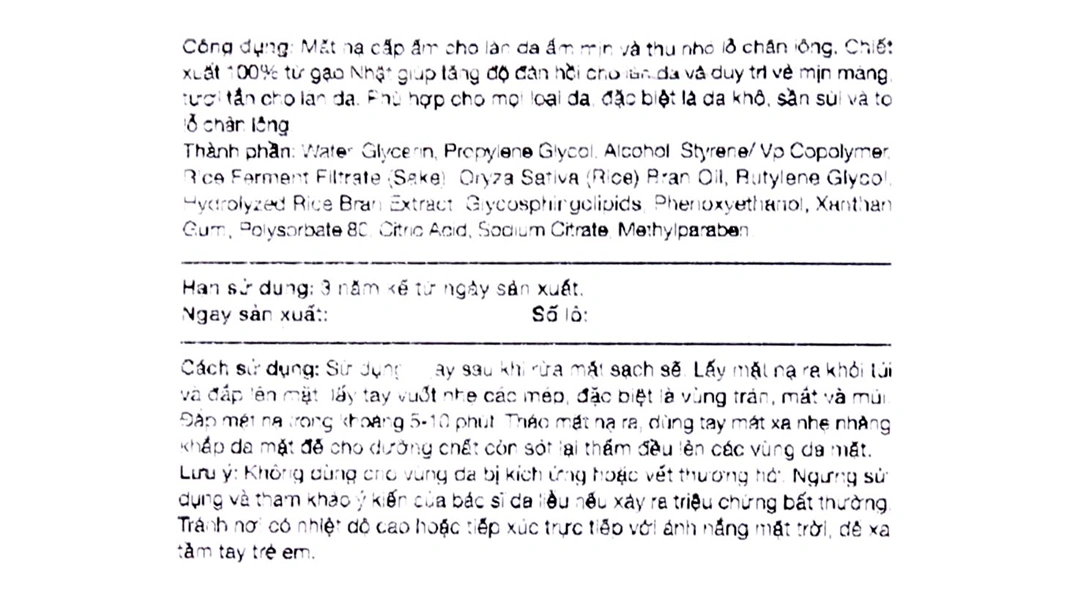 Công dụng: Mặt nạ cấp ẩm cho làn da ẩm mịn và thu nhỏ lỗ chân lông. Chiết
xuất 100% từ gạo Nhật giúp tăng độ đàn hồi cho làn da và duy trì vẻ mịn màng,
tươi tắn cho làn da. Phù hợp cho mọi loại da, đặc biệt là da khô, sần sùi và to
lỗ chân lông
Thành phần: Water, Glycerin, Propylene Glycol, Alcohol, Styrene/ Vp Copolymer,
Rice Ferment Filtrate (Sake), Oryza Sativa (Rice) Bran Oil, Butylene Glycol,
Hydrolyzed Rice Bran Extract, Glycosphingolipids, Phenoxyethanol, Xanthan
Gum, Polysorbate 80, Citric Acid, Sodium Citrate, Methylparaben
Hạn sử dụng: 3 năm kể từ ngày sản xuất.
Ngày sản xuất: Số lô:
Cách sử dụng: Sử dụng ngay sau khi rửa mặt sạch sẽ. Lấy mặt nạ ra khỏi túi
và đắp lên mặt, lấy tay vuốt nhẹ các mép, đặc biệt là vùng trán, mắt và mũi.
Đắp mặt nạ trong khoảng 5-10 phút. Tháo mặt nạ ra, dùng tay mát xa nhẹ nhàng
khắp da mặt để cho dưỡng chất còn sót lại thấm đều lên các vùng da mặt.
Lưu ý: Không dùng cho vùng da bị kích ứng hoặc vết thương hở. Ngưng sử
dụng và tham khảo ý kiến của bác sĩ da liễu nếu xảy ra triệu chứng bất thường.
Tránh nơi có nhiệt độ cao hoặc tiếp xúc trực tiếp với ánh nắng mặt trời, để xa
tầm tay trẻ em.